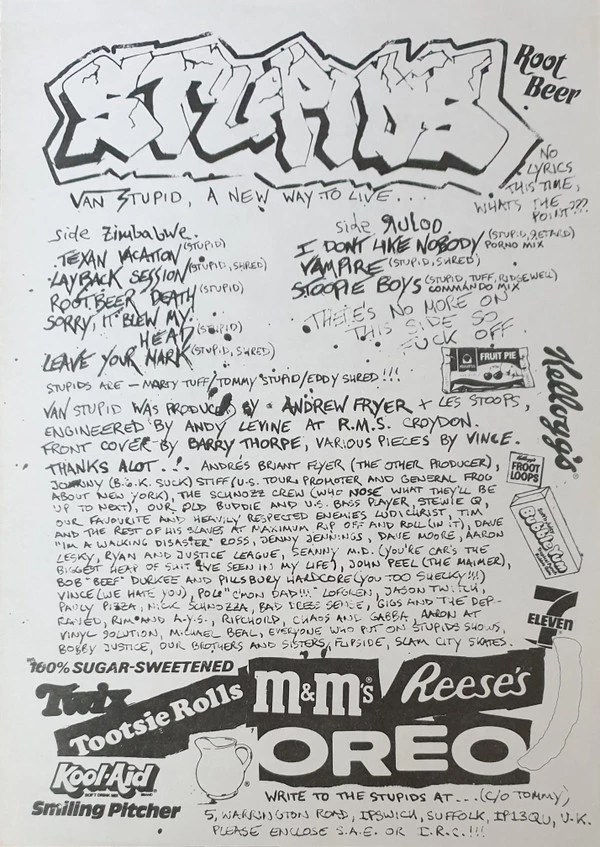 STUPIDS
Root
Beer
VAN STUPID, A NEW WAY TO LIVE...
NO
LYRICS
THIS TIME,
WHATS THE
POINT???
side Zimbabwe.
TEXAN VACATION (STUPID)
LAYBACK SESSION (STUPID, SHRED)
ROOTBEER DEATH (STUPID)
SORRY, IT BLEW MY
HEAD (STUPID)
LEAVE YOUR MARK (STUPID, SHRED)
side
I DONT LIKE NOBODY (STUPID, RETARD)
PORNO MIX
VAMPIRE (STUPID, SHRED)
STOOPIE BOYS (STUPID, TUFF, RIDGEWELL)
COMMANDO MIX
THERE'S NO MORE ON
THIS SIDE SO
FUCK OFF.
FRUIT PIE
STUPIDS ARE - MARTY TUFF/TOMMY STUPID/EDDY SHRED!!!
VAN STUPID WAS PRODUCED BY - ANDREW FRYER + LES STOOPS,
ENGINEERED BY ANDY LEVINE AT R.M.S. CROYDON.
FRONT COVER BY BARRY THORPE, VARIOUS PIECES BY VINCE.
Kellogg's
THANKS ALOT... ANDRÉS BRIANT FLYER (THE OTHER PRODUCER),
JOHNNY (B.G.K. SUCK) STIFF (U.S. TOUR PROMOTER AND GENERAL FROG
ABOUT NEW YORK), THE SCHNOZZ CREW (WHO NOSE WHAT THEY'LL BE
UP TO NEXT), OUR OLD BUDDIE AND U.S. BASS PLAYER STEVIE G,
OUR FAVOURITE AND HEAVILY RESPECTED ENEMIES LUDICHRIST, TIM
AND THE REST OF HIS SLAVES AT MAXIMUM RIP OFF AND ROLL (IN IT), DAVE
"I'M A WALKING DISASTER" ROSS, JENNY JENNINGS, DAVE MOORE, AARON
LESKY, RYAN AND JUSTICE LEAGUE, SEANNY M.D. (YOU'RE CAR'S THE
BIGGEST HEAP OF SHIT I'VE SEEN IN MY LIFE), JOHN PEEL (THE MAIMER),
BOB "BEEF" DURKEE AND PILLSBURY HARDCORE (YOU TOO SHELKY!!!)
VINCE (WE HATE YOU), "C'MON DAD!!!" LOFGREN, JASON TWITCH,
PAULY PIZZA, NICK SCHNOZZA, BAD DRESS SENSE, GIGS AND THE DEP-
RAVED, RIM AND A.Y.S., RIPCHORD, CHAOS AND GABBA, AARON AT
VINYL SOLUTION, MICHAEL BEAL, EVERYONE WHO PUT ON STUPIDS SHOWS,
BOBBY JUSTICE, OUR BROTHERS AND SISTERS, FLIPSIDE, SLAM CITY SKATES.
Kellogg's
FROOT
LOOPS
Bubble Yum
7
ELEVEN
100% SUGAR-SWEETENED
Twix
Tootsie Rolls
m&m's
Reese's
OREO
Kool-Aid
SOFT DRINK MIX
Smiling Pitcher
WRITE TO THE STUPIDS AT...(C/O TOMMY),
5, WARRINGTON ROAD, IPSWICH, SUFFOLK, IP13QU, U.K.
PLEASE ENCLOSE S.A.E. OR I.R.C.!!!